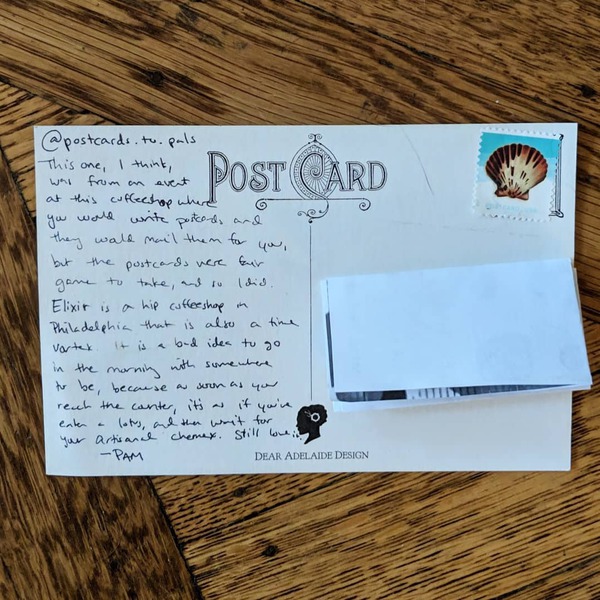 @postcards.to.pals
This one, I think,
was from an event
at this coffeeshop where
you would write postcards and
they would mail them for you,
but the postcards were fair
game to take, and so I did.
Elixir is a hip coffeeshop in
Philadelphia that is also a time
vortex. It is a bad idea to go
in the morning with somewhere
to be, because as soon as you
reach the counter, it's as if you've
eaten a lotus, and then wait for
your artisanal chemex. Still love it
-PAM
POST CARD
DEAR ADELAIDE DESIGN